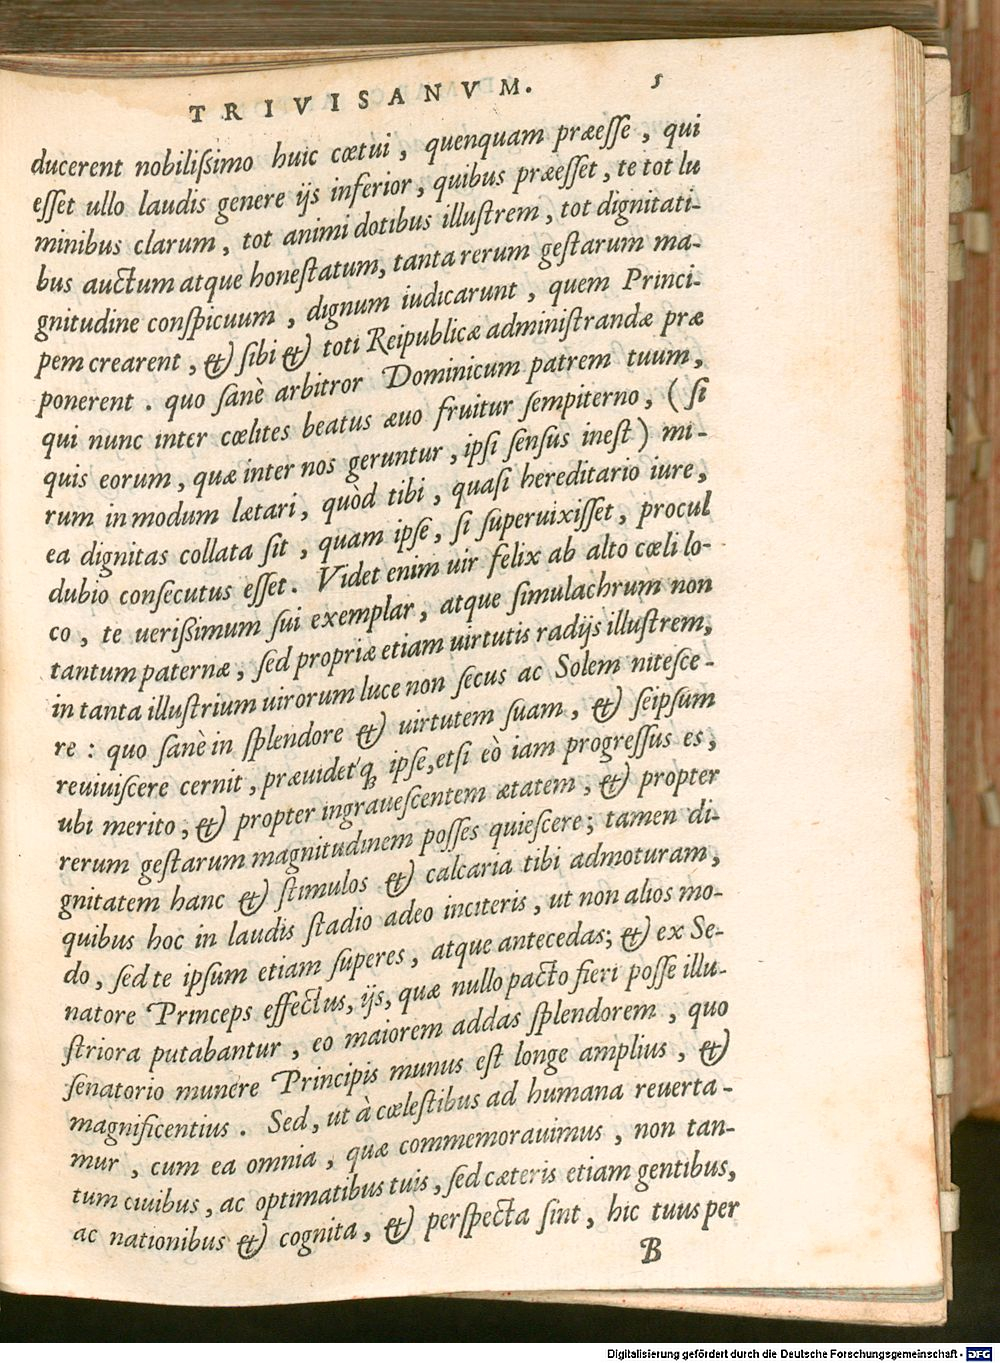 TRIVISANVM. 5
ducerent nobilißimo huic cœtui, quenquam præeſſe, qui
eſſet ullo laudis genere ijs inferior, quibus præeſſet, te tot lu
minibus clarum, tot animi dotibus illuſtrem, tot dignitati-
bus auctum atque honeſtatum, tanta rerum geſtarum ma-
gnitudine conſpicuum, dignum iudicarunt, quem Princi-
pem crearent, & ſibi & toti Reipublicæ adminiſtrandæ præ
ponerent. quo ſanè arbitror Dominicum patrem tuum,
qui nunc inter cœlites beatus æuo fruitur ſempiterno, (ſi
quis eorum, quæ inter nos geruntur, ipſi ſenſus ineſt) mi-
rum in modum lætari, quòd tibi, quaſi hereditario iure,
ea dignitas collata ſit, quam ipſe, ſi ſuperuixiſſet, procul
dubio conſecutus eſſet. Videt enim uir felix ab alto cœli lo-
co, te uerißimum ſui exemplar, atque ſimulachrum non
tantum paternæ, ſed propriæ etiam uirtutis radijs illuſtrem,
in tanta illuſtrium uirorum luce non ſecus ac Solem niteſce-
re: quo ſanè in ſplendore & uirtutem ſuam, & ſeipſum
reuiuiſcere cernit, præuidet'q; ipſe, etſi eò iam progreſſus es,
ubi merito, & propter ingraueſcentem ætatem, & propter
rerum geſtarum magnitudinem poſſes quieſcere; tamen di-
gnitatem hanc & ſtimulos & calcaria tibi admoturam,
quibus hoc in laudis ſtadio adeo inciteris, ut non alios mo-
do, ſed te ipſum etiam ſuperes, atque antecedas; & ex Se-
natore Princeps effectus, ijs, quæ nullo pacto fieri poſſe illu-
ſtriora putabantur, eo maiorem addas ſplendorem, quo
ſenatorio munere Principis munus eſt longe amplius, &
magnificentius. Sed, ut à cœleſtibus ad humana reuerta-
mur, cum ea omnia, quæ commemorauimus, non tan-
tum ciuibus, ac optimatibus tuis, ſed cæteris etiam gentibus,
ac nationibus & cognita, & perſpecta ſint, hic tuus per
B
Digitalisierung gefördert durch die Deutsche Forschungsgemeinschaft - DFG